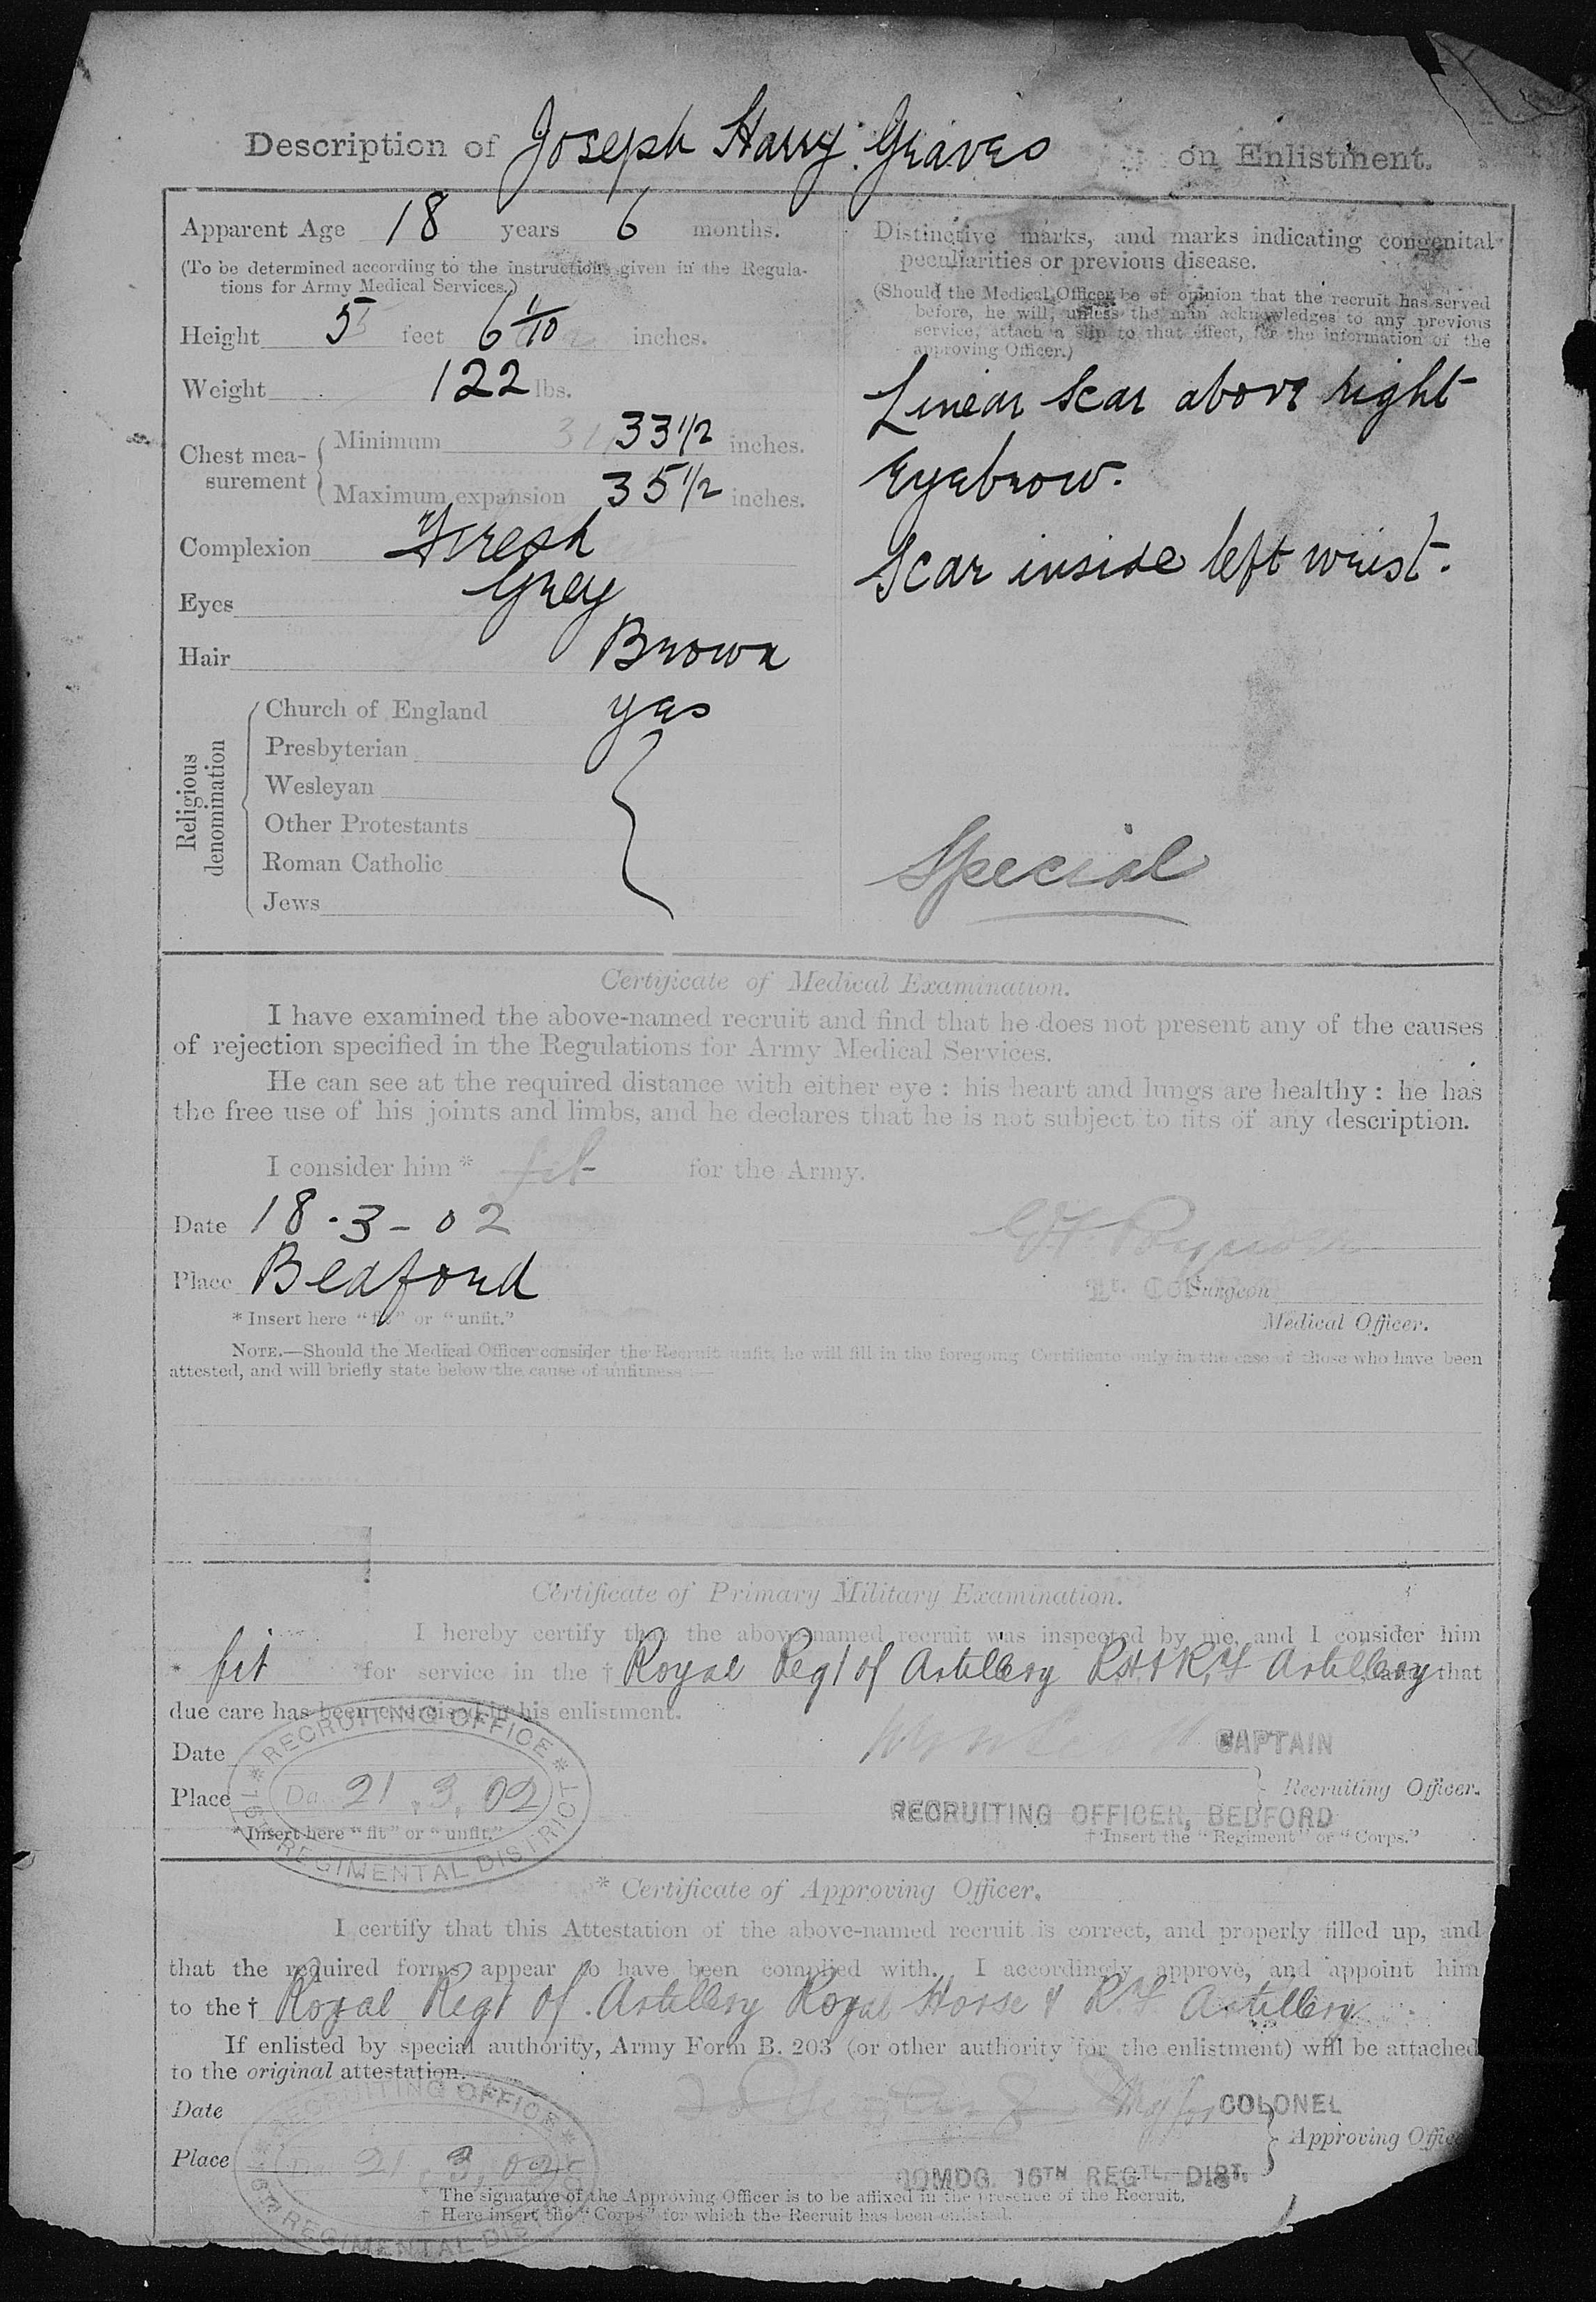 Description of Joseph Harry Graves on Enlistment.
Apparent Age 18 years 6 months.
(To be determined according to the instructions given in the Regula-
tions for Army Medical Services.)
Height 5 feet 6 1/10 inches.
Weight 122 lbs.
Chest mea-
surement
Minimum 33 1/2 inches.
Maximum expansion 35 1/2 inches.
Complexion Fresh
Eyes Grey
Hair Brown
Religious
denomination
Church of England yes
Presbyterian
Wesleyan
Other Protestants
Roman Catholic
Jews
Distinctive marks, and marks indicating congenital
peculiarities or previous disease.
(Should the Medical Officer be of opinion that the recruit has served
before, he will, unless the man acknowledges to any previous
service, attach a slip to that effect, for the information of the
approving Officer.)
Linear Scar above right
Eyebrow.
Scar inside left wrist.
Special
Certificate of Medical Examination.
I have examined the above-named recruit and find that he does not present any of the causes
of rejection specified in the Regulations for Army Medical Services.
He can see at the required distance with either eye : his heart and lungs are healthy : he has
the free use of his joints and limbs, and he declares that he is not subject to fits of any description.
I consider him * fit for the Army.
Date 18.3-02
Place Bedford
Lt. Col Surgeon
Medical Officer.
* Insert here "fit" or "unfit."
NOTE.—Should the Medical Officer consider the Recruit unfit, he will fill in the foregoing Certificate only in the case of those who have been
attested, and will briefly state below the cause of unfitness :—
Certificate of Primary Military Examination.
I hereby certify that the above-named recruit was inspected by me, and I consider him
* fit for service in the † Royal Regt of Artillery RH & R.F Artillery and that
due care has been exercised in his enlistment.
Date
Place
RECRUITING OFFICE
Da 21.3.02
16TH REGIMENTAL DISTRICT
CAPTAIN
Recruiting Officer.
RECRUITING OFFICER, BEDFORD
* Insert here "fit" or "unfit."
† Insert the "Regiment" or "Corps."
* Certificate of Approving Officer.
I certify that this Attestation of the above-named recruit is correct, and properly filled up, and
that the required forms appear to have been complied with. I accordingly approve, and appoint him
to the † Royal Regt of Artillery Royal Horse & R.F Artillery
If enlisted by special authority, Army Form B. 203 (or other authority for the enlistment) will be attached
to the original attestation.
Date
Place
RECRUITING OFFICE
Da 21.3.02
16TH REGIMENTAL DISTRICT
COLONEL
Approving Office
COMDG. 16TH REGTL. DIST.
* The signature of the Approving Officer is to be affixed in the presence of the Recruit.
† Here insert the "Corps" for which the Recruit has been enlisted.